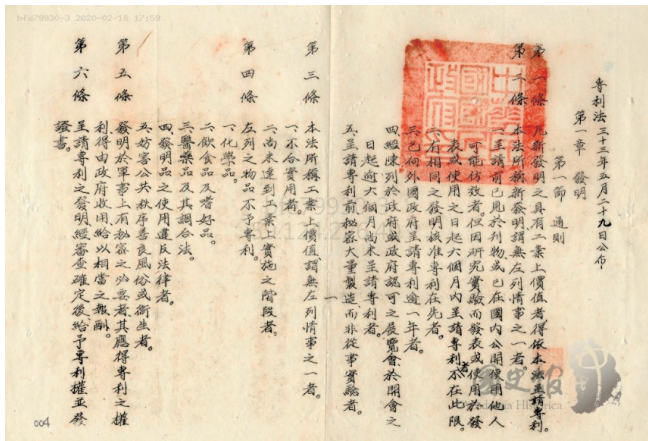 bfa79930-3 2020-02-18 17:59
專利法 三十三年五月二十九日公布
第一章 發明
第一節 通則
第一條 凡新發明之具有工業上價值者得依本法呈請專利。
第二條 本法所稱新發明謂無左列情事之一者
一、呈請前已見於刊物或已在國內公開使用他人
可能仿效者。但因研究實驗而發表或使用於發
表或使用之日起六個月內呈請專利者不在此限。
二、有相同之發明核准專利在先者。
三、已向外國政府呈請專利逾一年者。
四、經陳列於政府或政府認可之展覽會於開會之
日起逾六個月尚未呈請專利者。
五、呈請專利前秘密大量製造而非從事實驗者。
一
第三條 本法所稱工業上價值謂無左列情事之一者。
一、不合實用者。
二、尚未達到工業上實施之階段者。
第四條 左列之物品不予專利。
一、化學品。
二、飲食品及嗜好品。
三、醫藥品及其調合法。
四、發明品之使用違反法律者。
五、妨害公共秩序善良風俗或衛生者。
第五條 發明於軍事上有秘密之必要者其應得專利之權
利得由政府收用給以相當之報酬。
第六條 呈請專利之發明經審查確定後給予專利權並發
證書。
004
國史館
Academia Historica